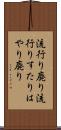 流行り廃り流
行りすたりは
やり廃り